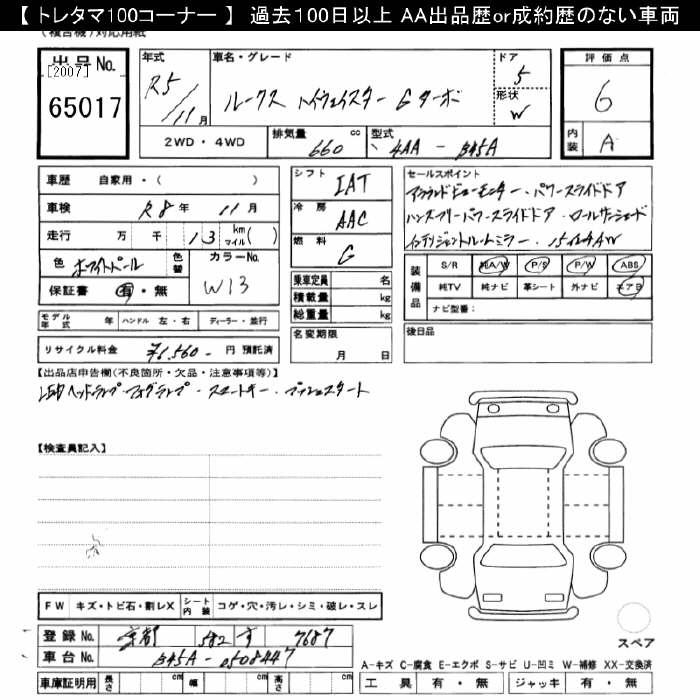 【トレタマ100コーナー】 過去100日以上 AA出品歴or成約歴のない車両
出品No. [2007] 65017
年式 R5/11月
車名・グレード ルークス ハイウェイスター Gターボ
ドア 5 形状 W
評価点 6 内装 A
2WD・4WD 排気量 660 cc 型式 4AA-B45A
車歴 自家用・( )
車検 R8年 11月
走行 万 千 13 km マイル( )
色 ホワイトパール 色替 カラーNo. W13
保証書 有・無
シフト IAT
冷房 AAC
燃料 G
乗車定員 名
積載量 kg
総重量 kg
名変期限 月 日
セールスポイント
アラウンドビューモニター・パワースライドドア
ハンズフリーパワースライドドア・ロールサンシェード
インテリジェントルームミラー・15インチAW
装備品 S/R 純A/W P/S P/W ABS
純TV 純ナビ 革シート 外ナビ エアB
ナビ型番:
後日品
モデル年式 年 ハンドル 左・右 ディーラー・並行
リサイクル料金 ¥6,560- 円 預託済
【出品店申告欄(不良箇所・欠品・注意事項等)】
LEDヘッドランプ・フォグランプ・スマートキー・プッシュスタート
【検査員記入】
FW キズ・トビ石・割レX シート内装 コゲ・穴・汚レ・シミ・破レ・スレ
登録No. 京都 582 す 7687
車台No. B45A-0508447
車庫証明用 長さ cm 幅 cm 高さ cm
スペア
A-キズ C-腐食 E-エクボ S-サビ U-凹ミ W-補修 XX-交換済
工具 有・無 ジャッキ 有・無